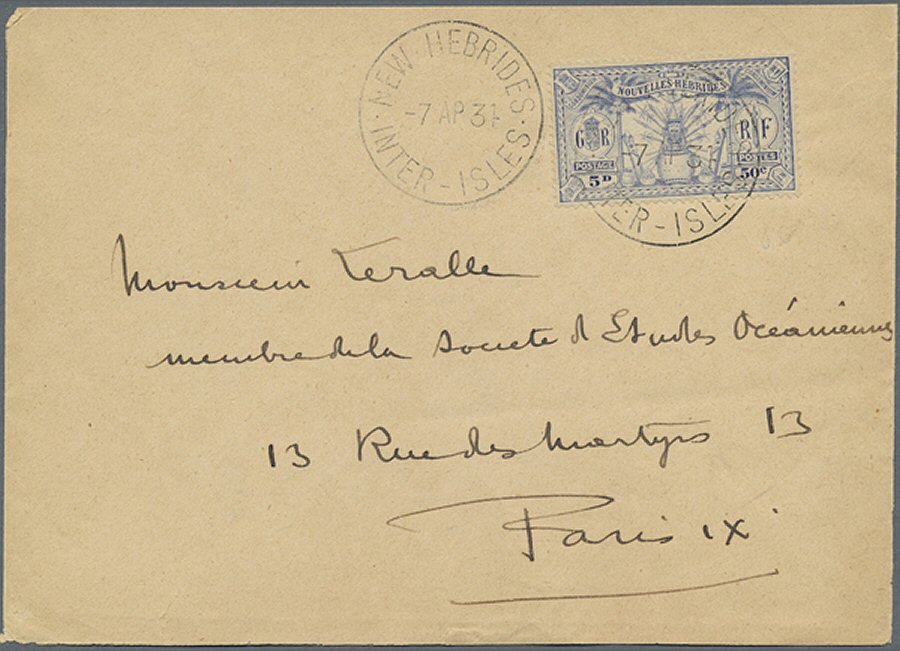 NEW · HEBRIDES ·
-7 AP 31
INTER - ISLES
NOUVELLES-HÉBRIDES
G R
R F
POSTAGE
POSTES
5D
50c
-7 31
INTER - ISLES
Monsieur Leralle
membre de la Societe d Etudes Océaniennes
13 Rue des Martyrs 13
Paris IX